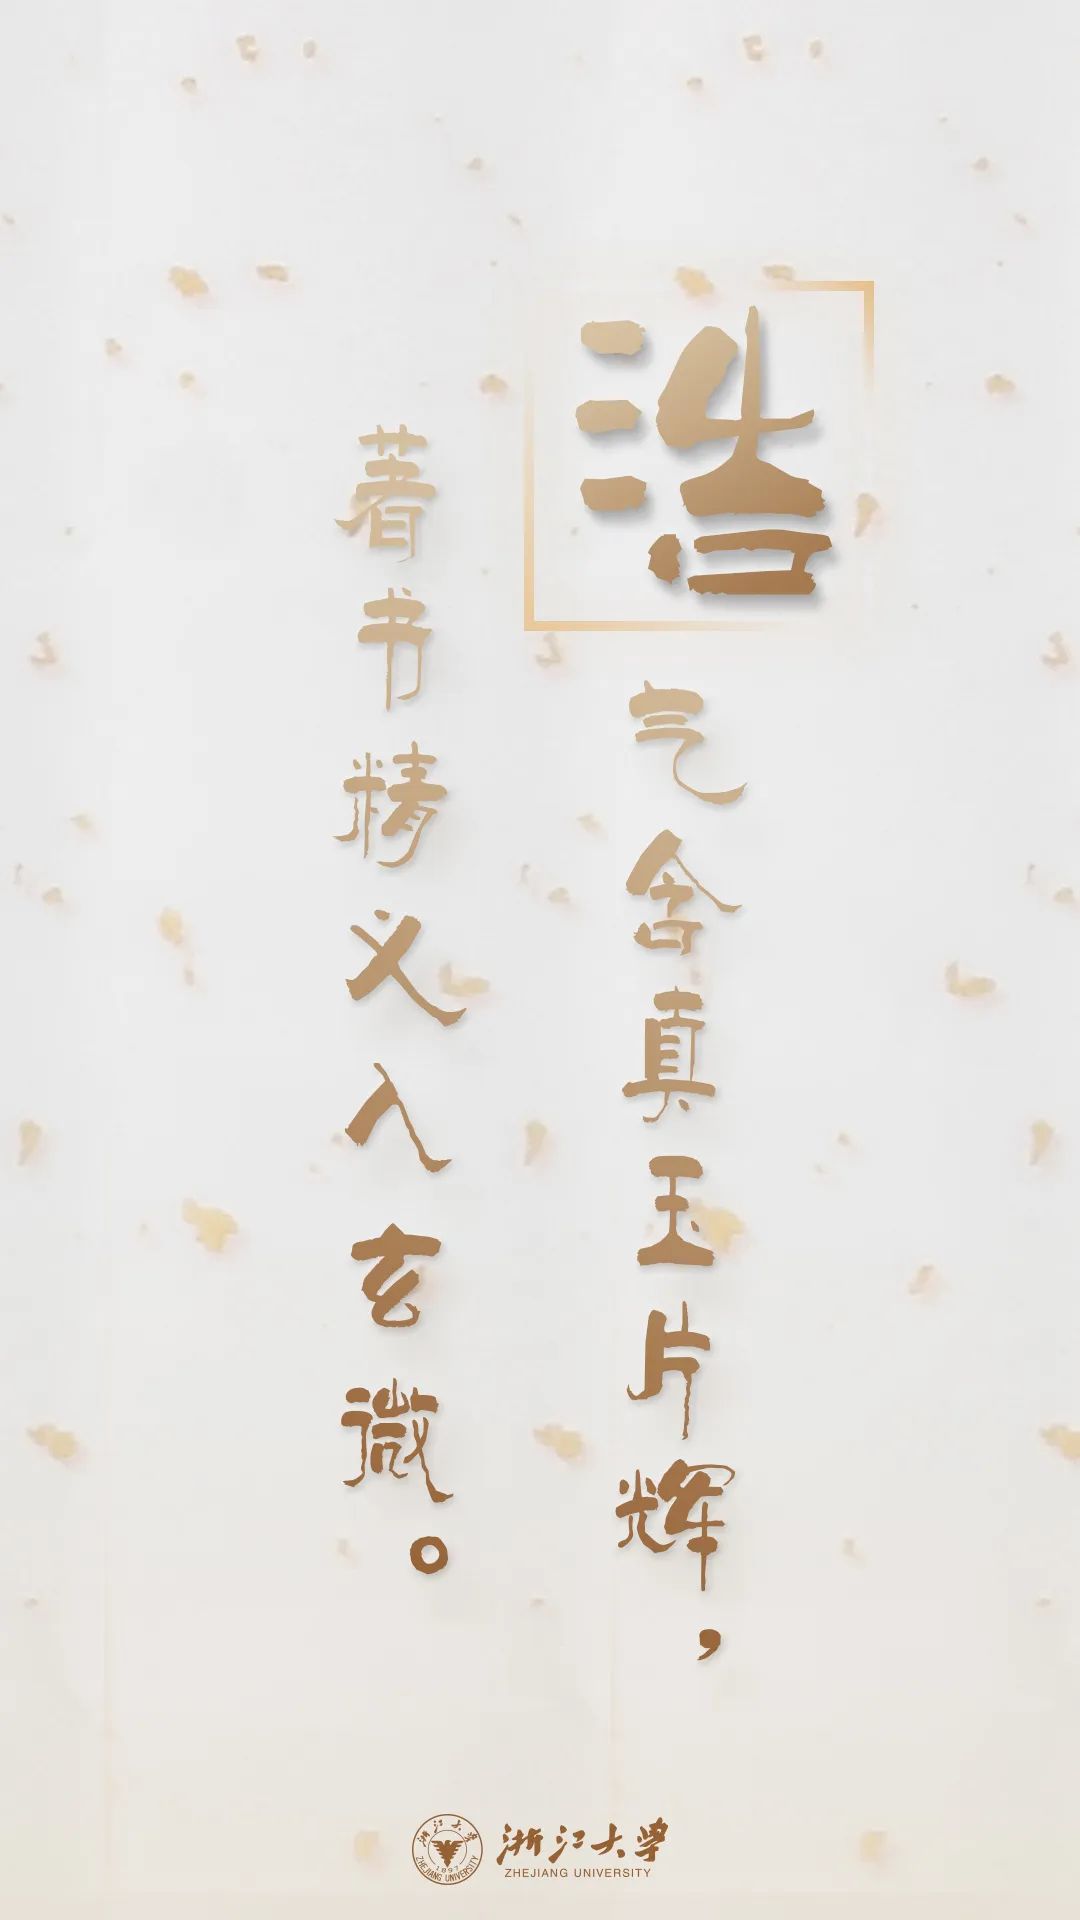 浩气含真玉片辉，
著书精义入玄微。
浙江大学
1897
ZHEJIANG UNIVERSITY
浙江大学
ZHEJIANG UNIVERSITY